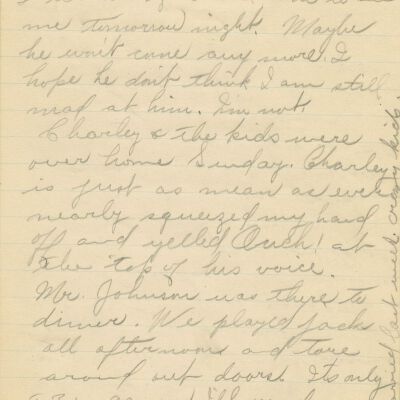 me tomorrow night. Maybe
he won't come any more. I
hope he don't think I am still
mad at him. I'm not.
Charley & the kids were
over home Sunday. Charley
is just as mean as ever
nearly squeezed my hand
off and yelled Ouch! at
the top of his voice.
Mr. Johnson was there to
dinner. We played jacks
all afternoon and tore
around out doors. Its only
last week. crazy kids.